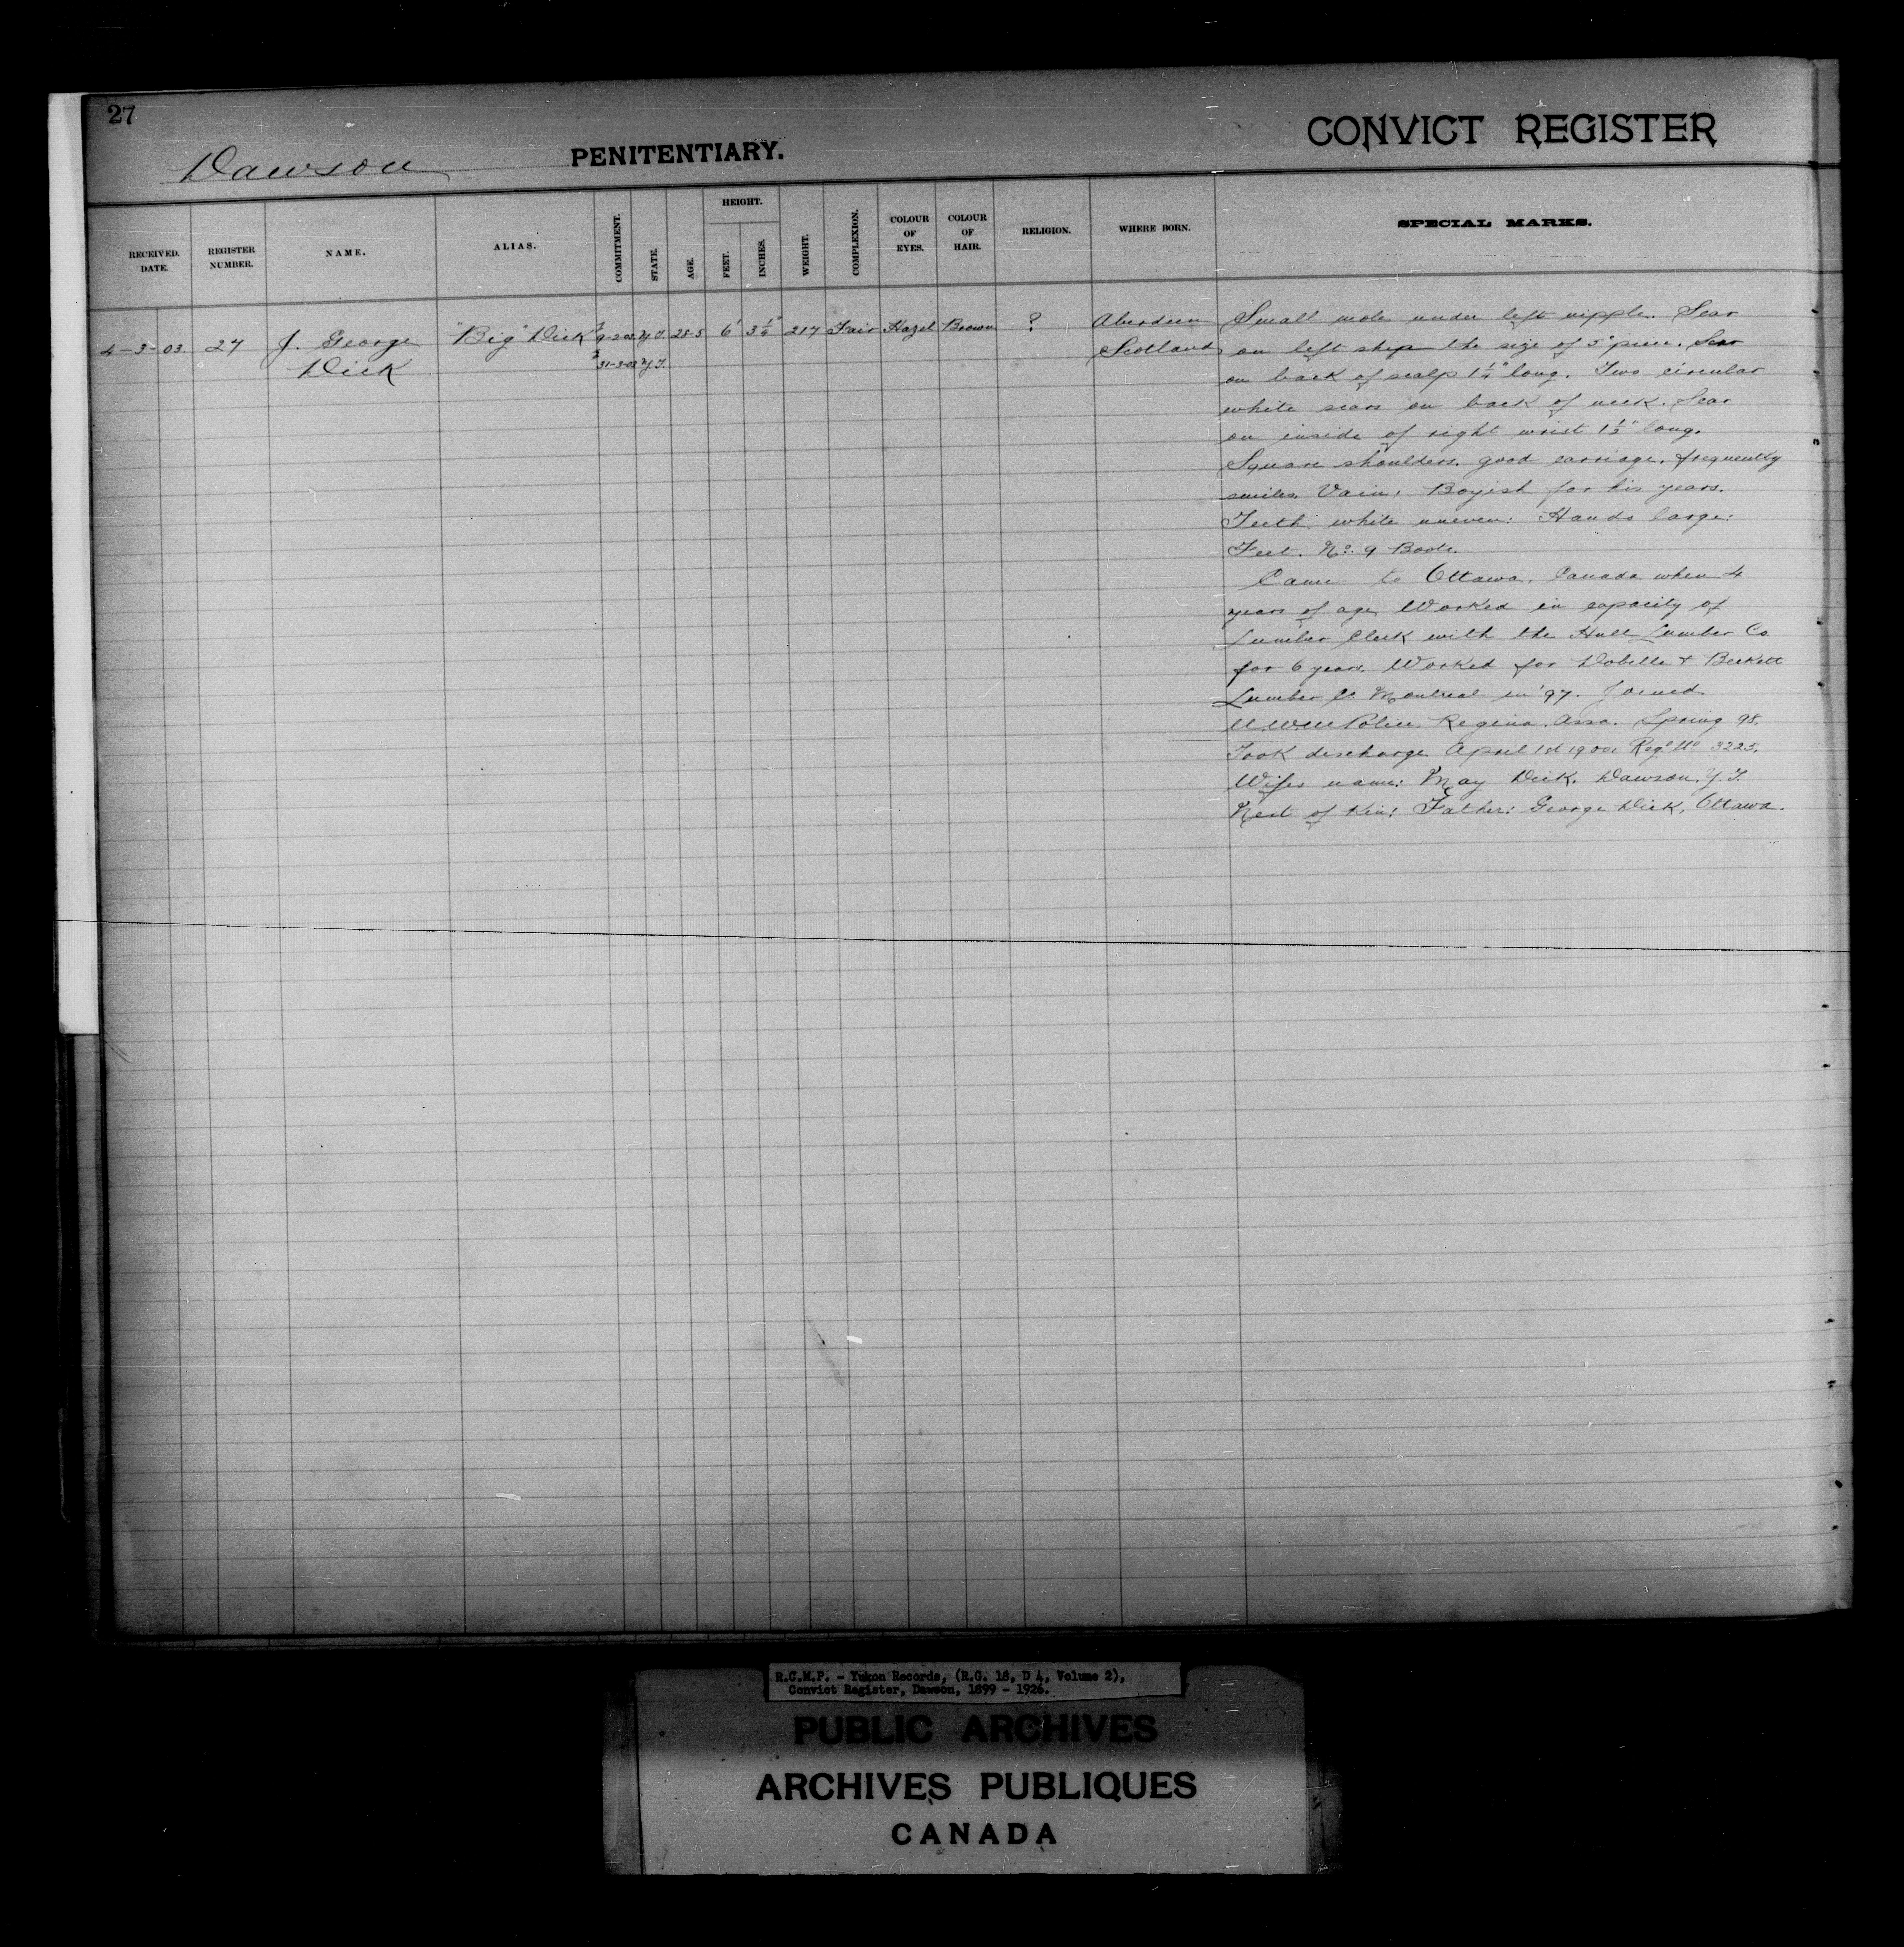 27
CONVICT REGISTER
Dawson PENITENTIARY.
RECEIVED. DATE.
REGISTER NUMBER.
NAME.
ALIAS.
COMMITMENT.
STATE.
AGE.
HEIGHT.
FEET.
INCHES.
WEIGHT.
COMPLEXION.
COLOUR OF EYES.
COLOUR OF HAIR.
RELIGION.
WHERE BORN.
SPECIAL MARKS.
4-3-03. 27 J. George "Big" Dick 9-2-03. Y.T. 28-5 6' 3 1/4" 217 Fair Hazel Brown ? Aberdeen
Dick 31-3-03 Y.T. Scotland
Small mole under left nipple. Scar
on left the size of 5¢ piece. Scar
on back of scalp 1 1/4" long. Two circular
white scars on back of neck. Scar
on inside of right wrist 1 1/2" long.
Square shoulders. good carriage. frequently
smiles. Vain. Boyish for his years.
Teeth: white uneven: Hands large:
Feet. No. 9 Boots.
Came to Ottawa, Canada when 4
years of age. Worked in capacity of
Lumber Clerk with the Hull Lumber Co
for 6 years. Worked for Dobelle + Beckett
Lumber Co. Montreal in '97. Joined
N.W.M Police. Regina. Assa. Spring 98.
Took discharge April 1st 1900. Reg. No 3225.
Wifes name: May Dick. Dawson. Y.T.
Next of Kin: Father: George Dick, Ottawa.
R.C.M.P. - Yukon Records, (R.G. 18, D 4, Volume 2),
Convict Register, Dawson, 1899 - 1926.
PUBLIC ARCHIVES
ARCHIVES PUBLIQUES
CANADA